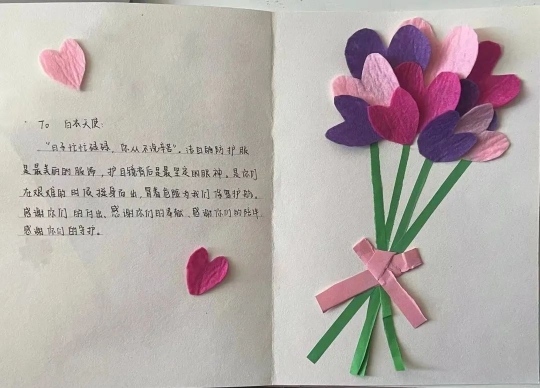 To 白衣天使:
"日子忙忙碌碌，你从不说辛苦"。洁白的防护服
是最美的服饰，护目镜背后是最坚定的眼神。是你们
在艰难的时候挺身而出，冒着危险为我们保驾护航。
感谢你们的付出，感谢你们的奉献，感谢你们的陪伴
感谢你们的守护。